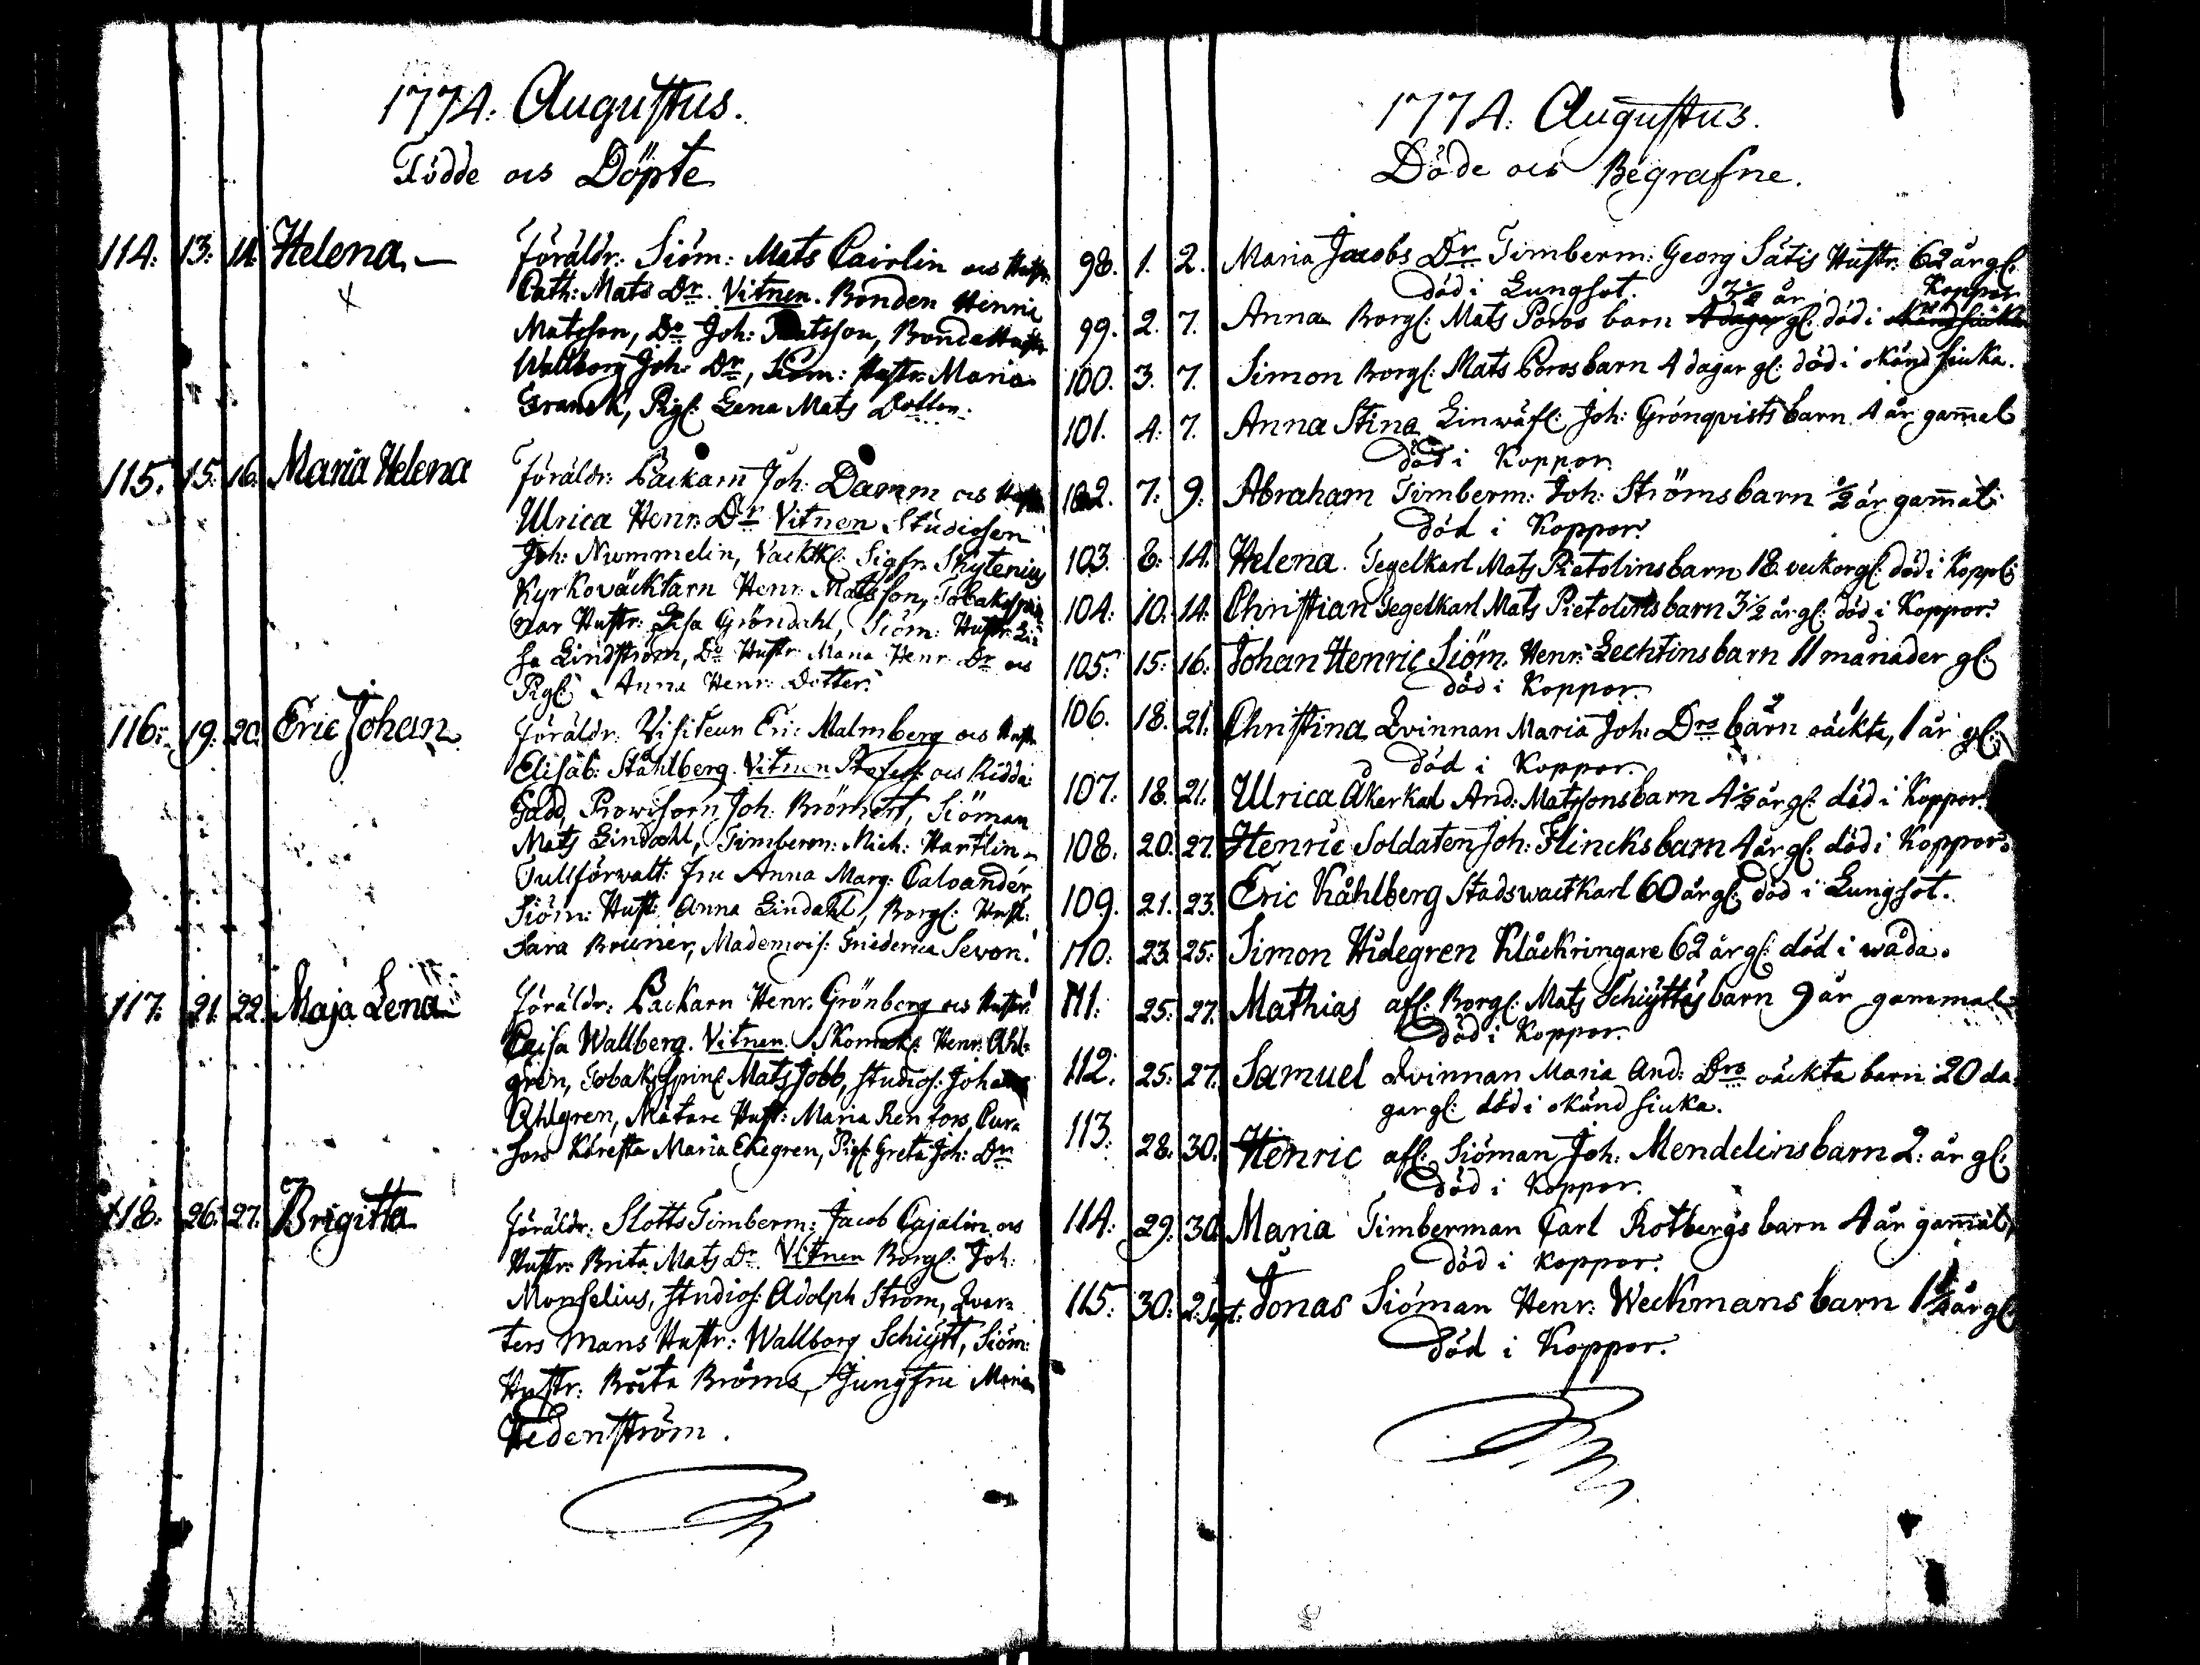 1774. Augustus.
Födde och Döpte
114. 13. 14. Helena. Föräldr: Siöm: Mats Cairlin och Hustr:
Cath: Mats Dr. Vitnen. Bonden Henric
Matsson, Do Joh: Matsson, Bonde Hustr:
Wallborg Joh: Dr, Siöm: Hustr: Maria
Granek, Pigl: Lena Mats Dotter.
115. 15. 16. Maria Helena Föräldr: Packarn Joh: Damm och Hustr:
Ulrica Henr: Dr Vitnen Studiosen
Joh: Nummelin, Vacktkl: Sigfr: Skytenius
Kyrkoväcktarn Henr: Matsson, Tobakspin
nar Hustr: Lisa Gröndahl, Siöm: Hustr: Li
sa Lindström, Do Hustr: Maria Henr: Dr och
Pigl: Anna Henr: Dotter.
116. 19. 20. Eric Johan Föräldr: Visiteur Eri: Malmberg och Hustr:
Elisab: Ståhlberg. Vitnen Profess: och Ridda:
Gadd, Prowisorn Joh: Brömert, Siöman
Mats Lindahl, Timberm: Mich: Hartlin
Tullförwalt: Fru Anna Marg: Calvander,
Siöm: Hust: Anna Lindahl, Borgl: Hust:
Sara Bruner, Mademois: Friederica Sevon.
117. 21. 22. Maja Lena Föräldr: Packarn Henr: Grönberg och Hustr:
Caisa Wallberg. Vitnen. Skomak: Henr: Ahl-
gren, Tobaks Spin: Mats Jobb, studios: Johan
Ahlgren, Mätare Hust: Maria Renfors, Cur-
sors Köresta Maria Ekegren, Pigl: Greta Joh: Dr
118. 26. 27. Brigitta Föräldr: Slotts Timberm: Jacob Cajalin och
Hustr: Brita Mats Dr. Vitnen Borgl: Joh:
Monselius, studios: Adolph Ström, Qvar-
ters Mans Hustr: Wallborg Schiytt, Siöm:
Hustr: Brita Bröms, Jungfru Maria
Hedenström.
1774. Augustus.
Döde och Begrafne.
98. 1. 2. Maria Jacobs Dr Timberm: Georg Sátis Hustr: 62 år gl:
död i Lungsot. 3 1/2 år Koppor
99. 2. 7. Anna Borgl: Mats Poros barn 4 dagar gl: död i okänd siuka
100. 3. 7. Simon Borgl: Mats Poros barn 4 dagar gl: död i okänd siuka.
101. 4. 7. Anna Stina Linwäfl: Joh: Grönqvists barn 4 år gamel
död i Koppor
102. 7. 9. Abraham Timberm: Joh: Ströms barn 1/2 år gamal
död i Koppor.
103. 8. 14. Helena. Tegelkarl Mats Pietolins barn 18. veckor gl: död i Koppl:
104. 10. 14. Christian Tegelkarl Mats Pietolins barn 3 1/2 år gl: död i Koppor.
105. 15. 16. Johan Henric Siöm. Henr: Lechtins barn 11 månader gl:
död i Koppor.
106. 18. 21. Christina Qvinnan Maria Joh: Drs barn oäckta, 1 år gl:
död i Koppor.
107. 18. 21. Ulrica Åkerkarl And: Matssons barn 4 1/2 år gl: död i Koppor.
108. 20. 27. Henric Soldaten Joh: Flincks barn 4 år gl: död i Koppor.
109. 21. 23. Eric Kåhlberg Stadswactkarl 60 år gl: död i Lungsot.
110. 23. 25. Simon Hidegren Klåckringare 62 år gl: död i wåda.
111. 25. 27. Mathias afl: Borgl: Mats Schiyttis barn 9 år gammal
död i Koppor.
112. 25. 27. Samuel Qvinnan Maria And: Drs oäckta barn 20 da-
gar gl: död i okänd siuka.
113. 28. 30. Henric afl: Siöman Joh: Mendelins barn 2. år gl:
död i koppor.
114. 29. 30. Maria Timberman Carl Rotbergs barn 4 år gamal,
död i koppor.
115. 30. 2. Sept: Jonas Siöman Henr: Weckmans barn 1 1/2 år gl:
död i Koppor.